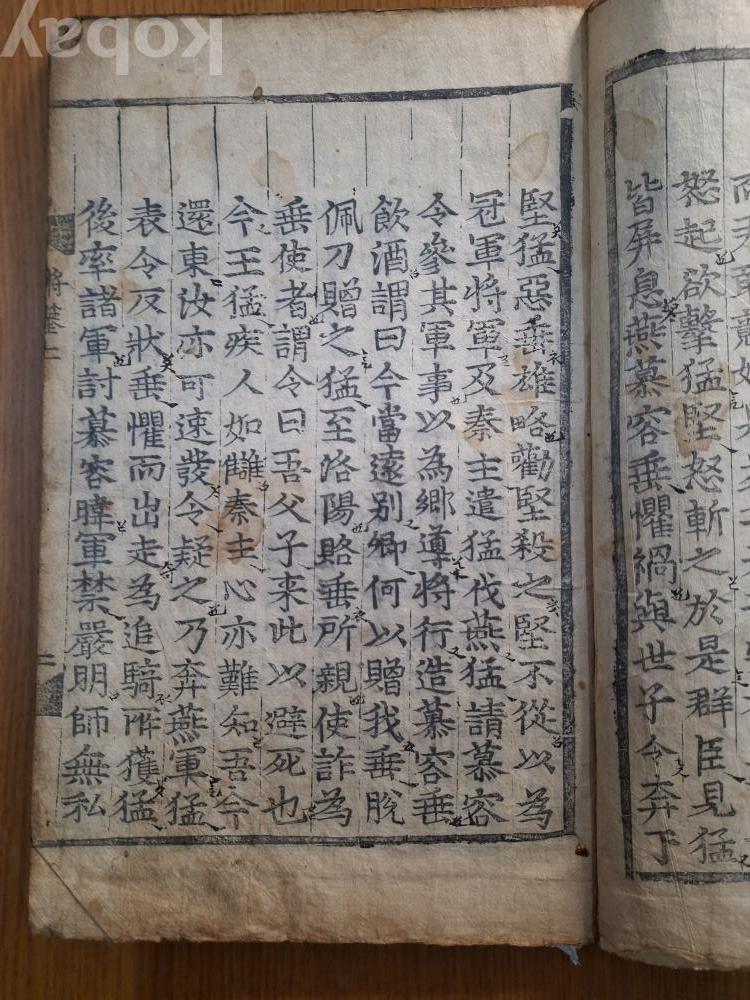 怒起欲擊猛堅怒斬之於是群臣見猛
皆屏息燕慕容垂懼禍與世子令奔于
堅猛惡垂雄略勸堅殺之堅不從以為
冠軍將軍及秦主遣猛伐燕猛請慕容
令參其軍事以為鄉導將行造慕容垂
飲酒謂曰今當遠別卿何以贈我垂脫
佩刀贈之猛至洛陽賂垂所親使詐為
垂使者謂令曰吾父子来此以避死也
今王猛疾人如讎秦主心亦難知吾今
還東汝亦可速發令疑之乃奔燕軍猛
表令反狀垂懼而出走為追騎所獲猛
後率諸軍討慕容暐軍禁嚴明師無私
kobay